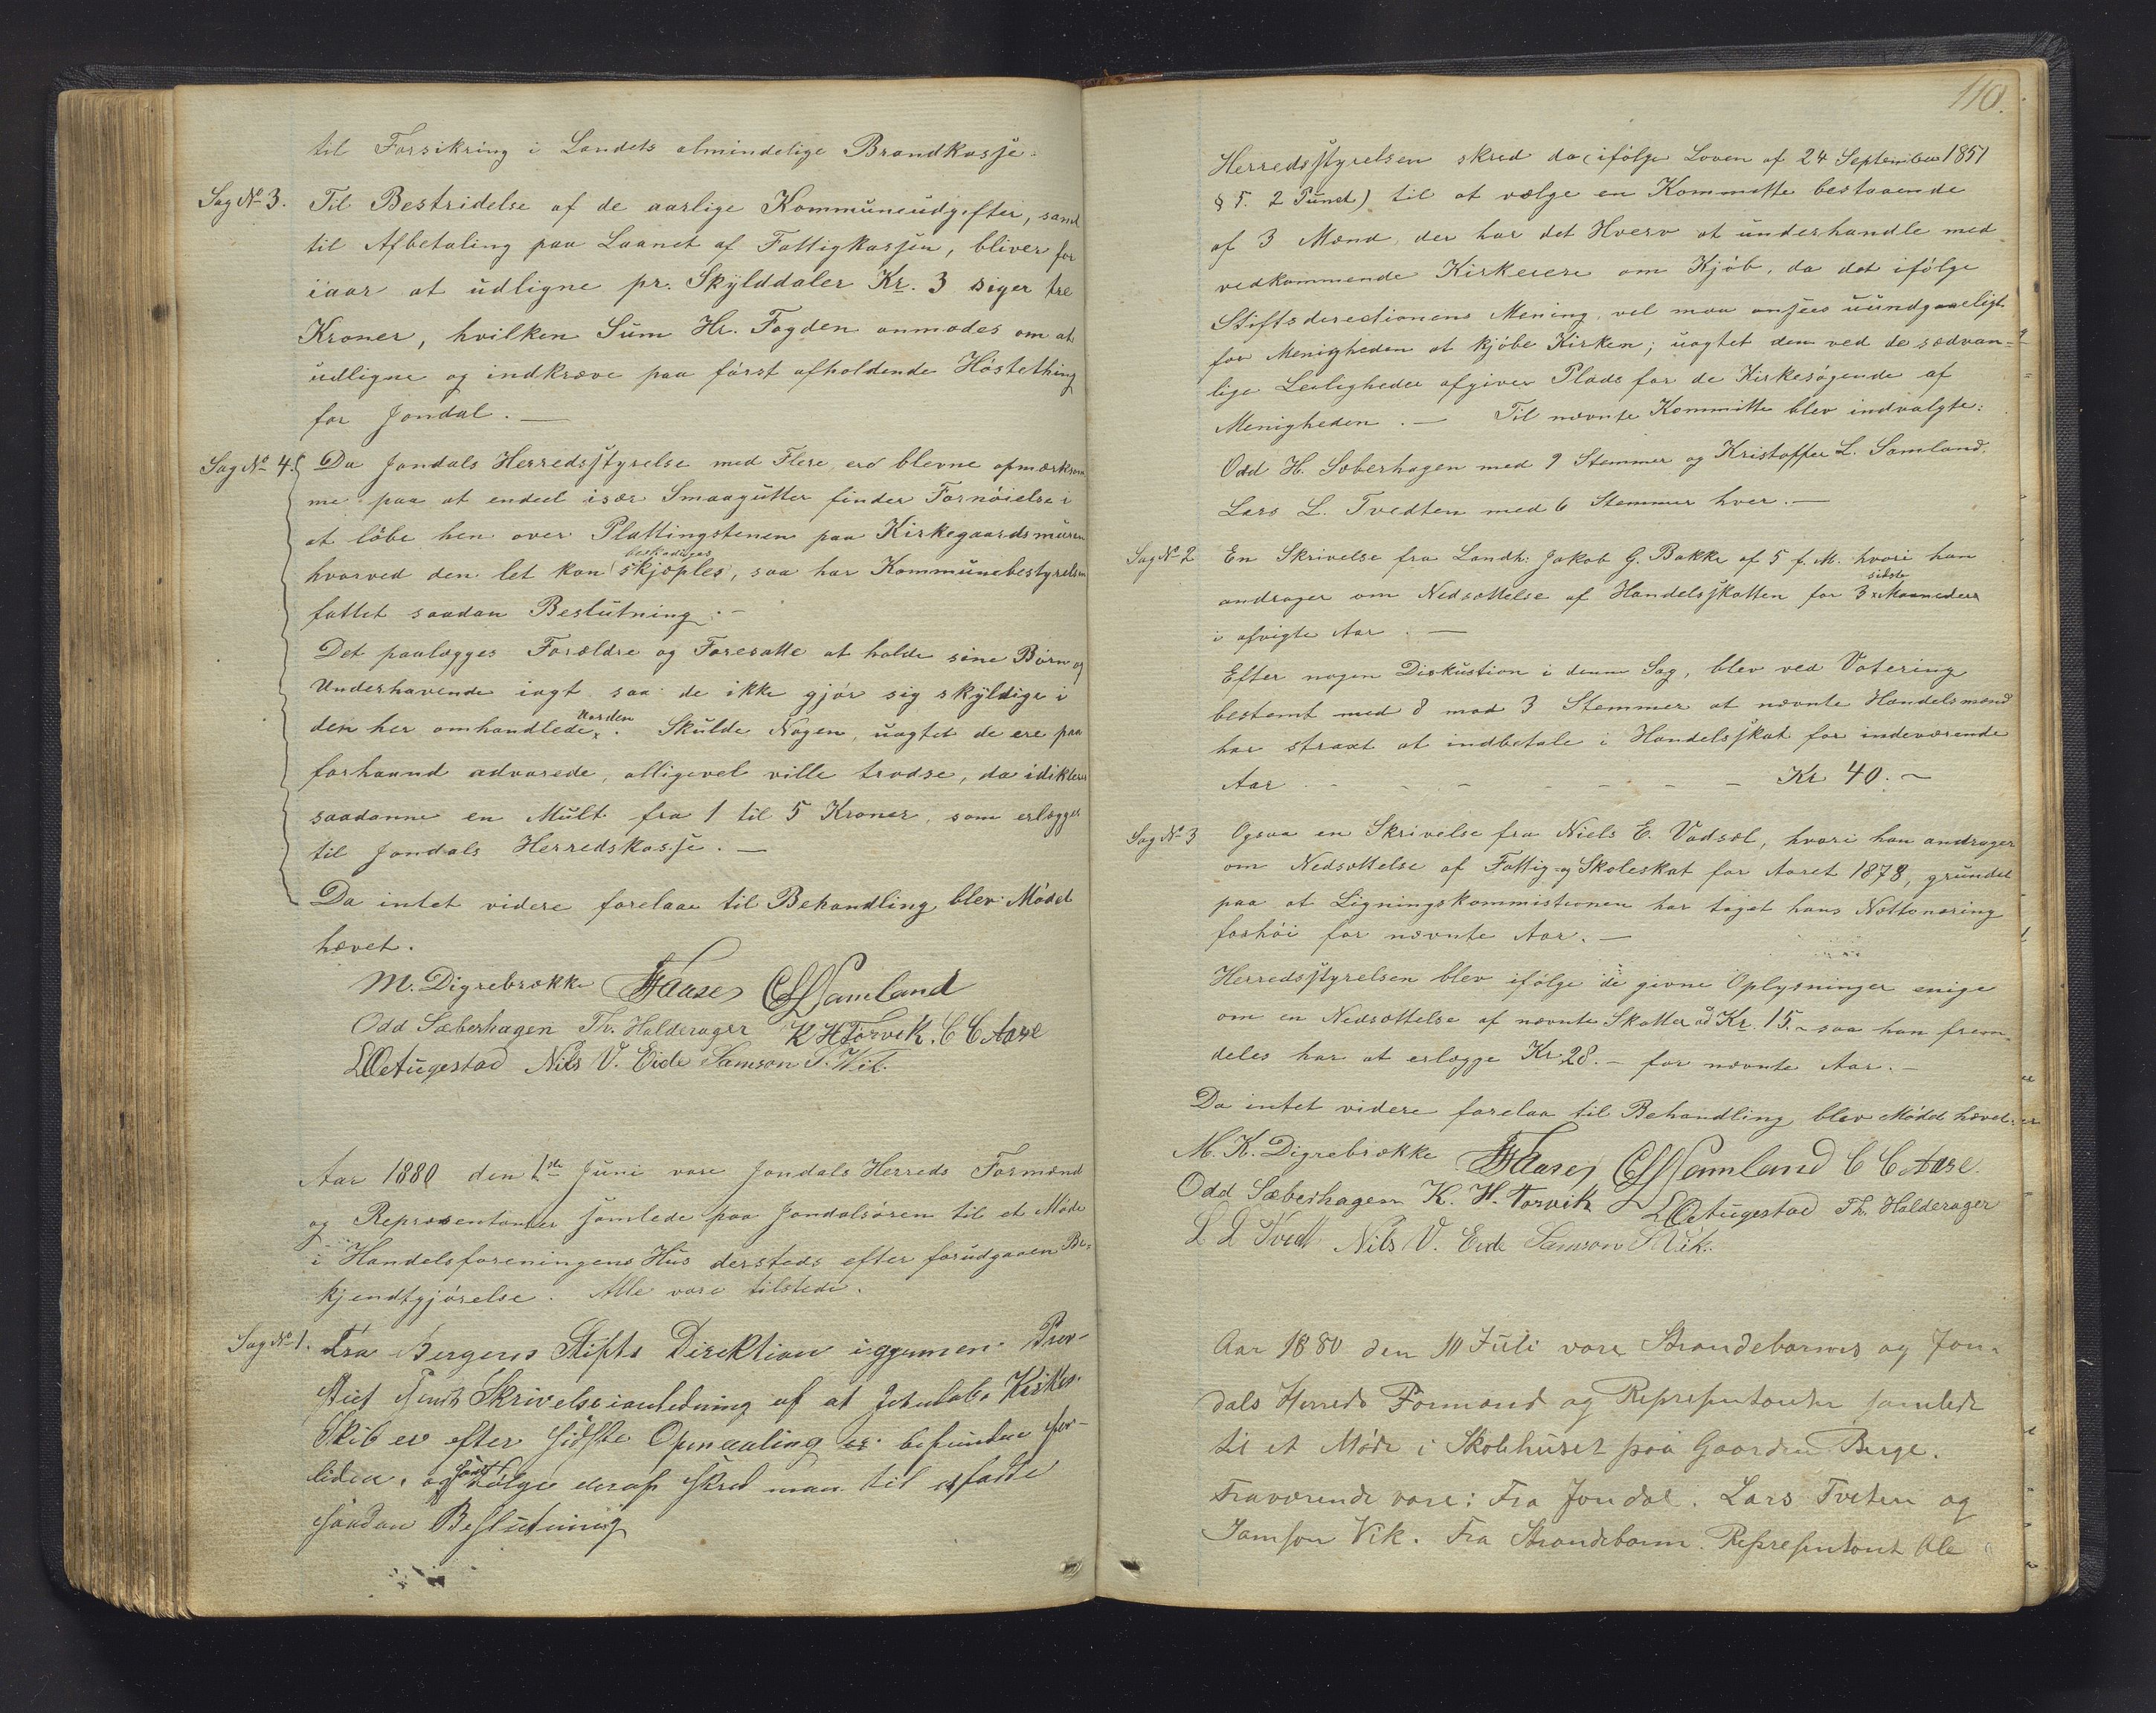 til Forsikring i Landets almindelige Brandkasse.
Sag No 3. Til Bestridelse af de aarlige Kommuneudgifter, samt
til Afbetaling paa Laanet af Fattigkassen, bliver for
iaar at udligne pr. Skylddaler Kr. 3 siger tre
Kroner, hvilken Sum Hr. Fogden anmodes om at
udligne og indkræve paa först afholdende Höstething
for Jondal. —
Sag No 4. Da Jondals Herredsstyrelse med Flere, ere blevne opmærksom
me paa at endeel især Smaagutter finder Fornöielse i
at löbe hen over Plattingstenen paa Kirkegaardsmuren
beskadiges
hvorved den let kan skjæples, saa har Kommunebestyrelsen
fattet saadan Beslutning: –
Det paalægges Forældre og Foresatte at holde sine Börn og
Underhavende iagt saa de ikke gjör sig skyldige i
Uorden
den her omhandlede x. Skulde Nogen, uagtet de ere paa
forhaand advarede, alligevel ville trodse, da idikteres
saadanne en Mult fra 1 til 5 Kroner, som erlægges
til Jondals Herredskasse. —
Da intet videre forelaae til Behandling, blev Mödet
hævet.
M. Digrebrække THaase CLSamland
Odd Sæberhagen Th. Halderager K H Torvik. C C Aase
LOAugestad Nils V. Eide Samson S. Vik.
Aar 1880 den 1ste Juni vare Jondals Herreds Formænd
og Repræsentanter samlede paa Jondalsören til et Möde
i Handelsforeningens Hus dersteds efter forudgaaen Be-
kjendtgjörelse. Alle vare tilstede.
Sag No 1. Fra Bergens Stifts Direktion igjennem Prov-
stiet sendt Skrivelse ianledning af at Jondals Kirkes
Skib er efter sidste Opmaaling er befunden for
liden, og som Fölge deraf skred man til at fatte
saadan Beslutning
110.
Herredsstyrelsen skred da (ifölge Loven af 24 September 1851
§ 5. 2 Punct) til at vælge en Kommitte bestaaende
af 3 Mænd, der har det Hverv at underhandle med
vedkommende Kirkeeiere om Kjöb, da det ifölge
Stiftsdirectionens Mening, vel maa ansees uundgaaeligt
for Menigheden at kjöbe Kirken; uagtet den ved de sædvan-
lige Leiligheder afgiver Plads for de Kirkesögende af
Menigheden. — Til nævnte Kommitte blev indvalgte:
Odd H. Sæberhagen med 9 Stemmer og Kristoffer L. Samland.
Lars L. Tvedten med 6 Stemmer hver. —
Sag No 2 En Skrivelse fra Landh. Jakob G. Bakke af 5 f. M. hvori han
sidste
andrager om Nedsættelse af Handelsskatten for 3 Maaneder
i afvigte Aar. —
Efter nogen Diskustion i denne Sag, blev ved Votering
bestemt med 8 mod 3 Stemmer at nævnte Handelsmand
har straxt at indbetale i Handelsskat for indeværende
Aar - - - - - - - Kr 40. ~
Sag No 3 Ogsaa en Skrivelse fra Niels E. Vadsel, hvori han andrager
om Nedsættelse af Fattig- og Skoleskat for Aaret 1878, grundet
paa at Ligningskommistionen har taget hans Nættonæring
forhöi for nævnte Aar. —
Herredsstyrelsen blev ifölge de givne Oplysninger enige
om en Nedsættelse af nævnte Skatter ad Kr. 15. ~ saa han frem-
deles har at erlægge Kr 28. – for nævnte Aar. –
Da intet videre forelaa til Behandling blev Mödet hævet.
M. K. Digrebrække THaase CLSamland C C Aase.
Odd Sæberhagen K. H. Torvik LOAugestad Th. Halderager
L L Tvedt Nils V. Eide Samson S Vik.
Aar 1880 den 10 Juli vare Strandebarms og Jon-
dals Herreds Formænd og Repræsentanter samlede
til et Möde i Skolehuset paa Gaarden Berge.
Fraværende vare: Fra Jondal. Lars Tveten og
Samson Vik. Fra Strandebarm. Repræsentant Ole